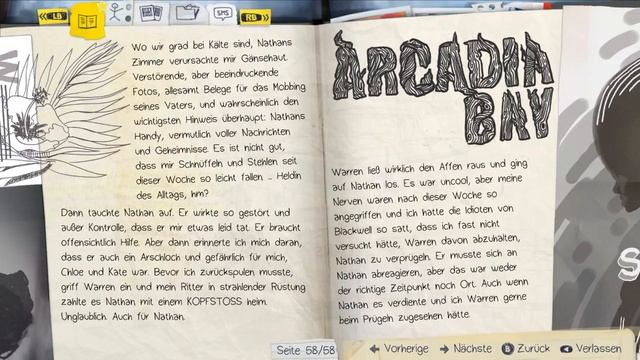 LB
SMS
RB
Wo wir grad bei Kälte sind, Nathans
Zimmer verursachte mir Gänsehaut.
Verstörende, aber beeindruckende
Fotos, allesamt Belege für das Mobbing
seines Vaters, und wahrscheinlich den
wichtigsten Hinweis überhaupt: Nathans
Handy, vermutlich voller Nachrichten
und Geheimnisse. Es ist nicht gut,
dass mir Schnüffeln und Stehlen seit
dieser Woche so leicht fallen ... Heldin
des Alltags, hm?
Dann tauchte Nathan auf. Er wirkte so gestört und
außer Kontrolle, dass er mir etwas leid tat. Er braucht
offensichtlich Hilfe. Aber dann erinnerte ich mich daran,
dass er auch ein Arschloch und gefährlich für mich,
Chloe und Kate war. Bevor ich zurückspulen musste,
griff Warren ein und mein Ritter in strahlender Rüstung
zahlte es Nathan mit einem KOPFSTOSS heim.
Unglaublich. Auch für Nathan.
ARCADIA
BAY
Warren ließ wirklich den Affen raus und ging
auf Nathan los. Es war uncool, aber meine
Nerven waren nach dieser Woche so
angegriffen und ich hatte die Idioten von
Blackwell so satt, dass ich fast nicht
versucht hätte, Warren davon abzuhalten,
Nathan zu verprügeln. Er musste sich an
Nathan abreagieren, aber das war weder
der richtige Zeitpunkt noch Ort. Auch wenn
Nathan es verdiente und ich Warren gerne
beim Prügeln zugesehen hätte.
Seite 58/58
Vorherige
Nächste
B Zurück
Verlassen